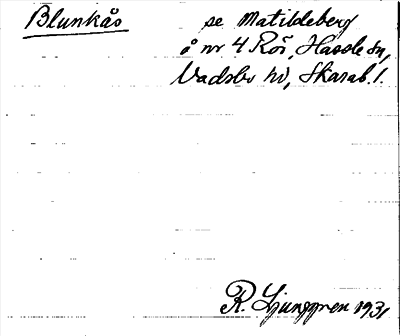 Blunkås se Matildeberg
å nr 4 Röi, Hassle sn,
Vadsbo hd, Skarab. l.
R. Ljunggren 1931